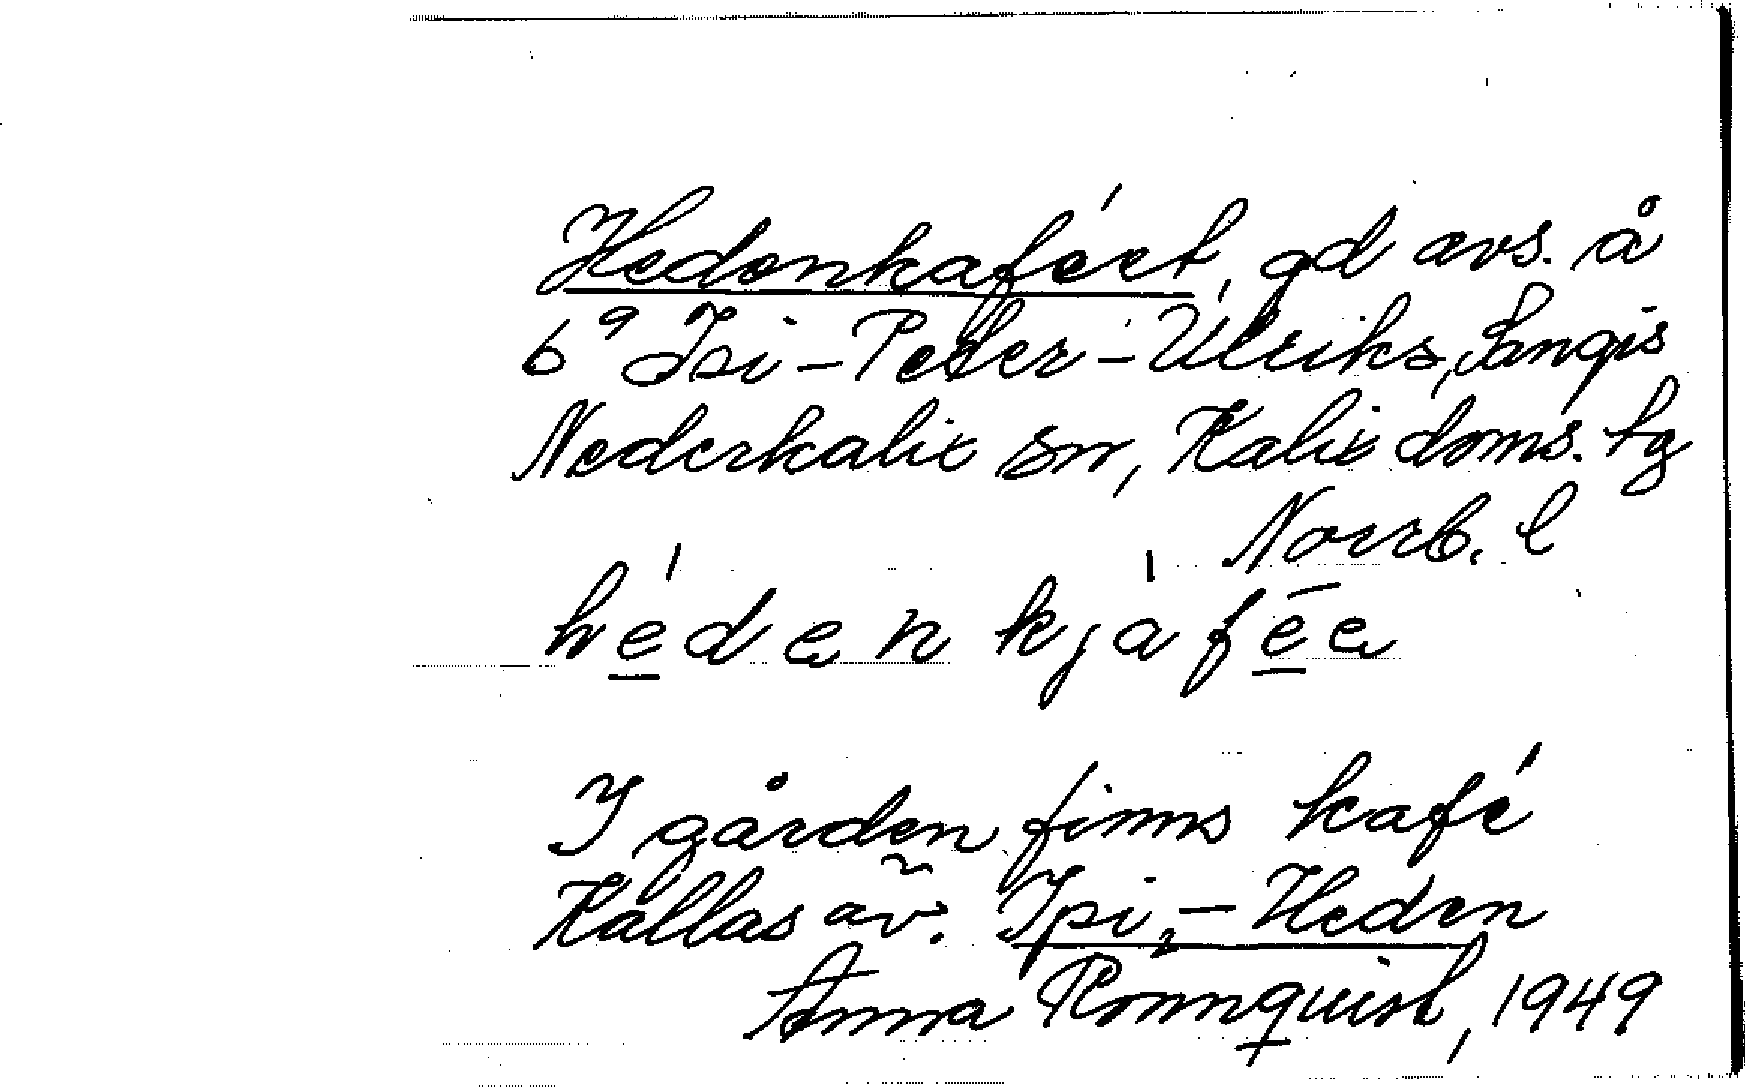 Hedenkaféet, gd avs. å
6⁹ Isi-Peter-Ulriks, Sangis
Nederkalix sn, Kalix doms. tg
Norrb. l
hédenkjáfēe
I gården finns kafé
Kallas äv. Ipi,-Heden
Anna Rönnquist, 1949